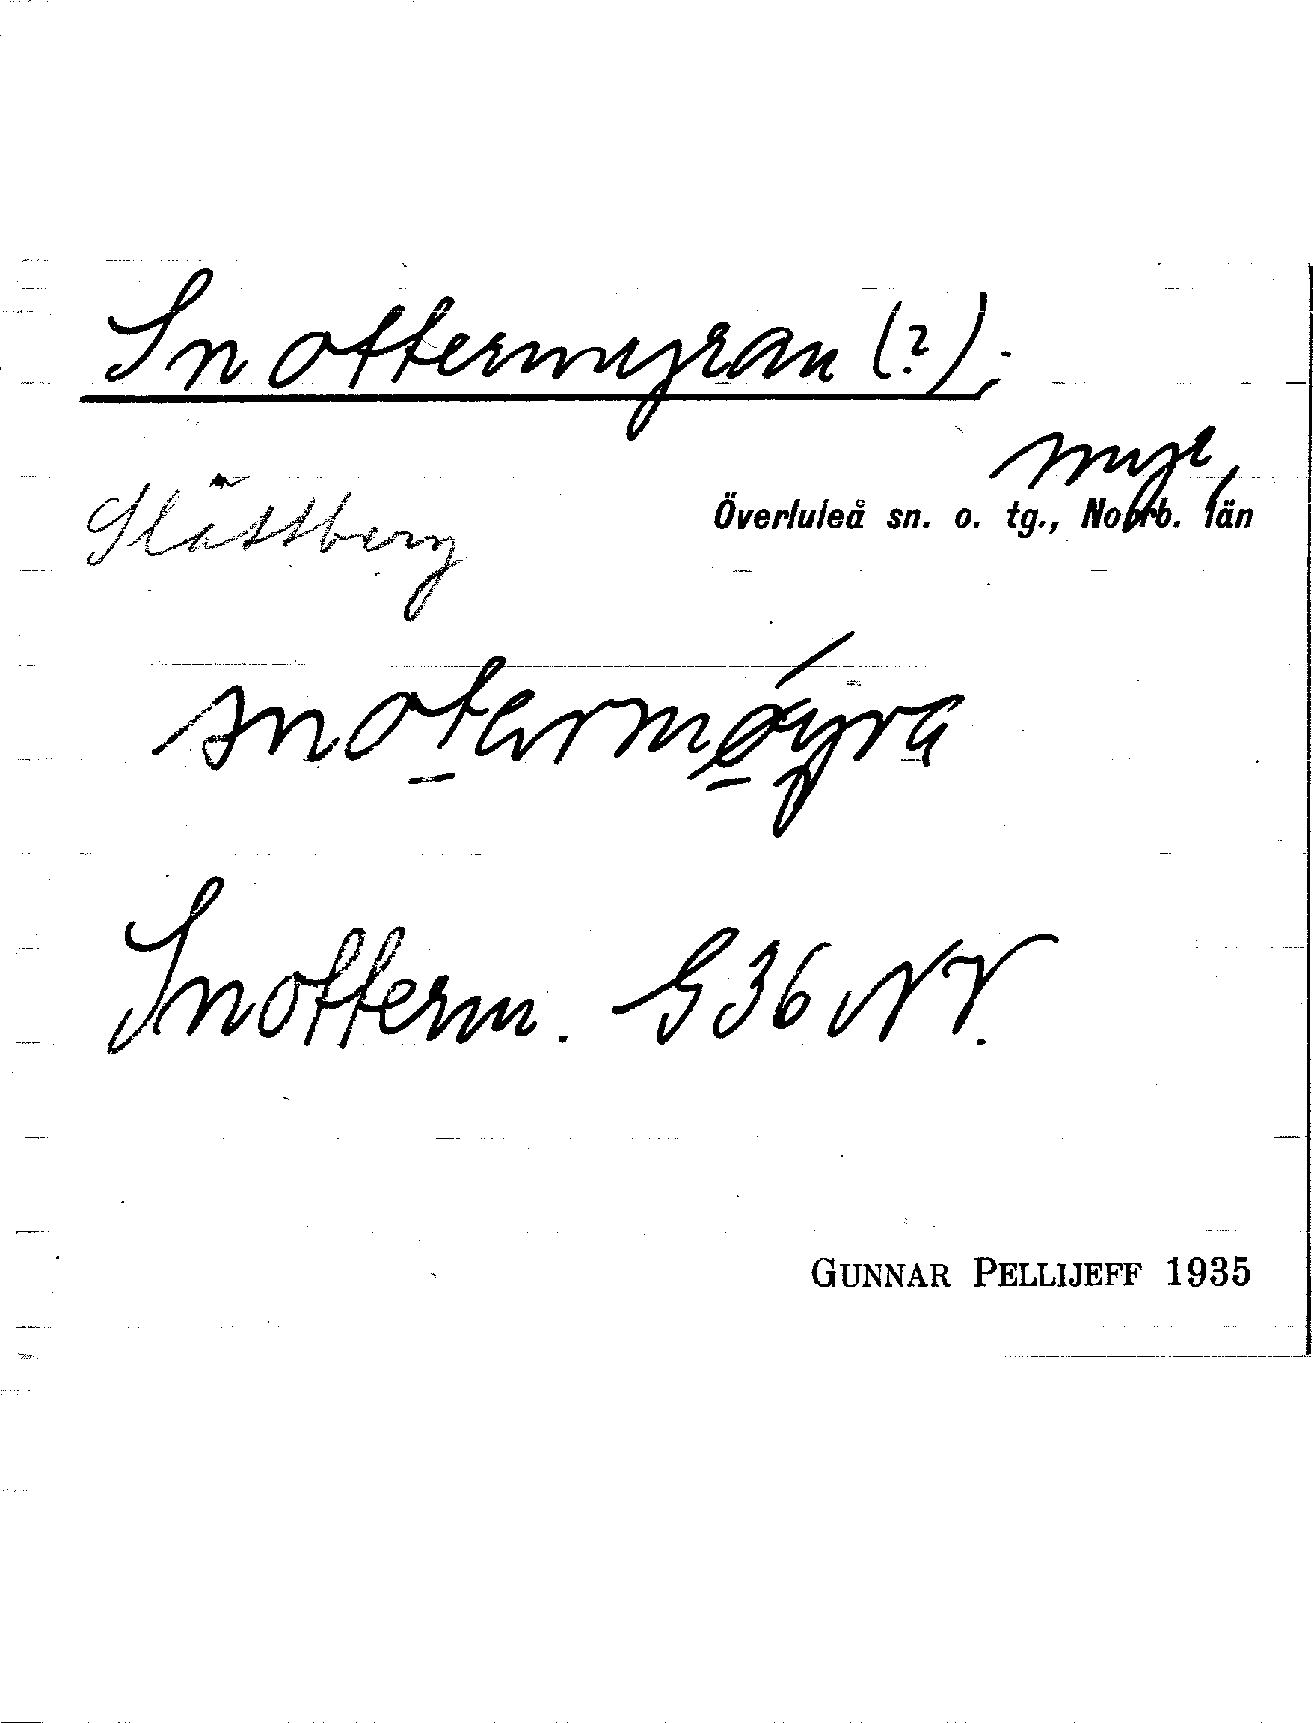 Snottermyran (?);
myr,
Slättberg
Överluleå sn. o. tg., Norrb. län
snotermøyra
Snotterm. G36 NV.
GUNNAR PELLIJEFF 1935